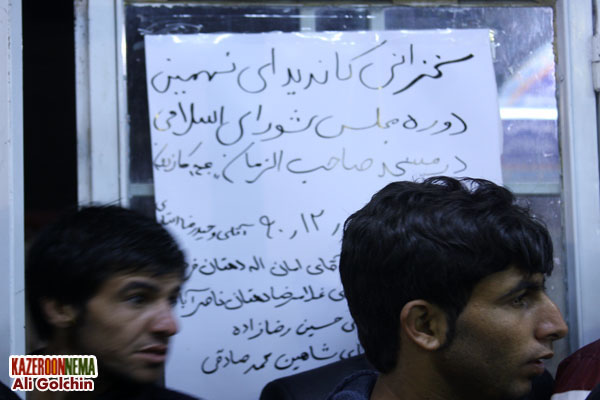 سخنرانی کاندیدای نهمین
دوره مجلس شورای اسلامی
در مسجد صاحب الزمان
۹۰,۱۲
امان اله دهقان
غلامرضا دهقان ناصرآبادی
حسین رضازاده
شاهین محمد صادقی
KAZEROONNEMA
Ali Golchin